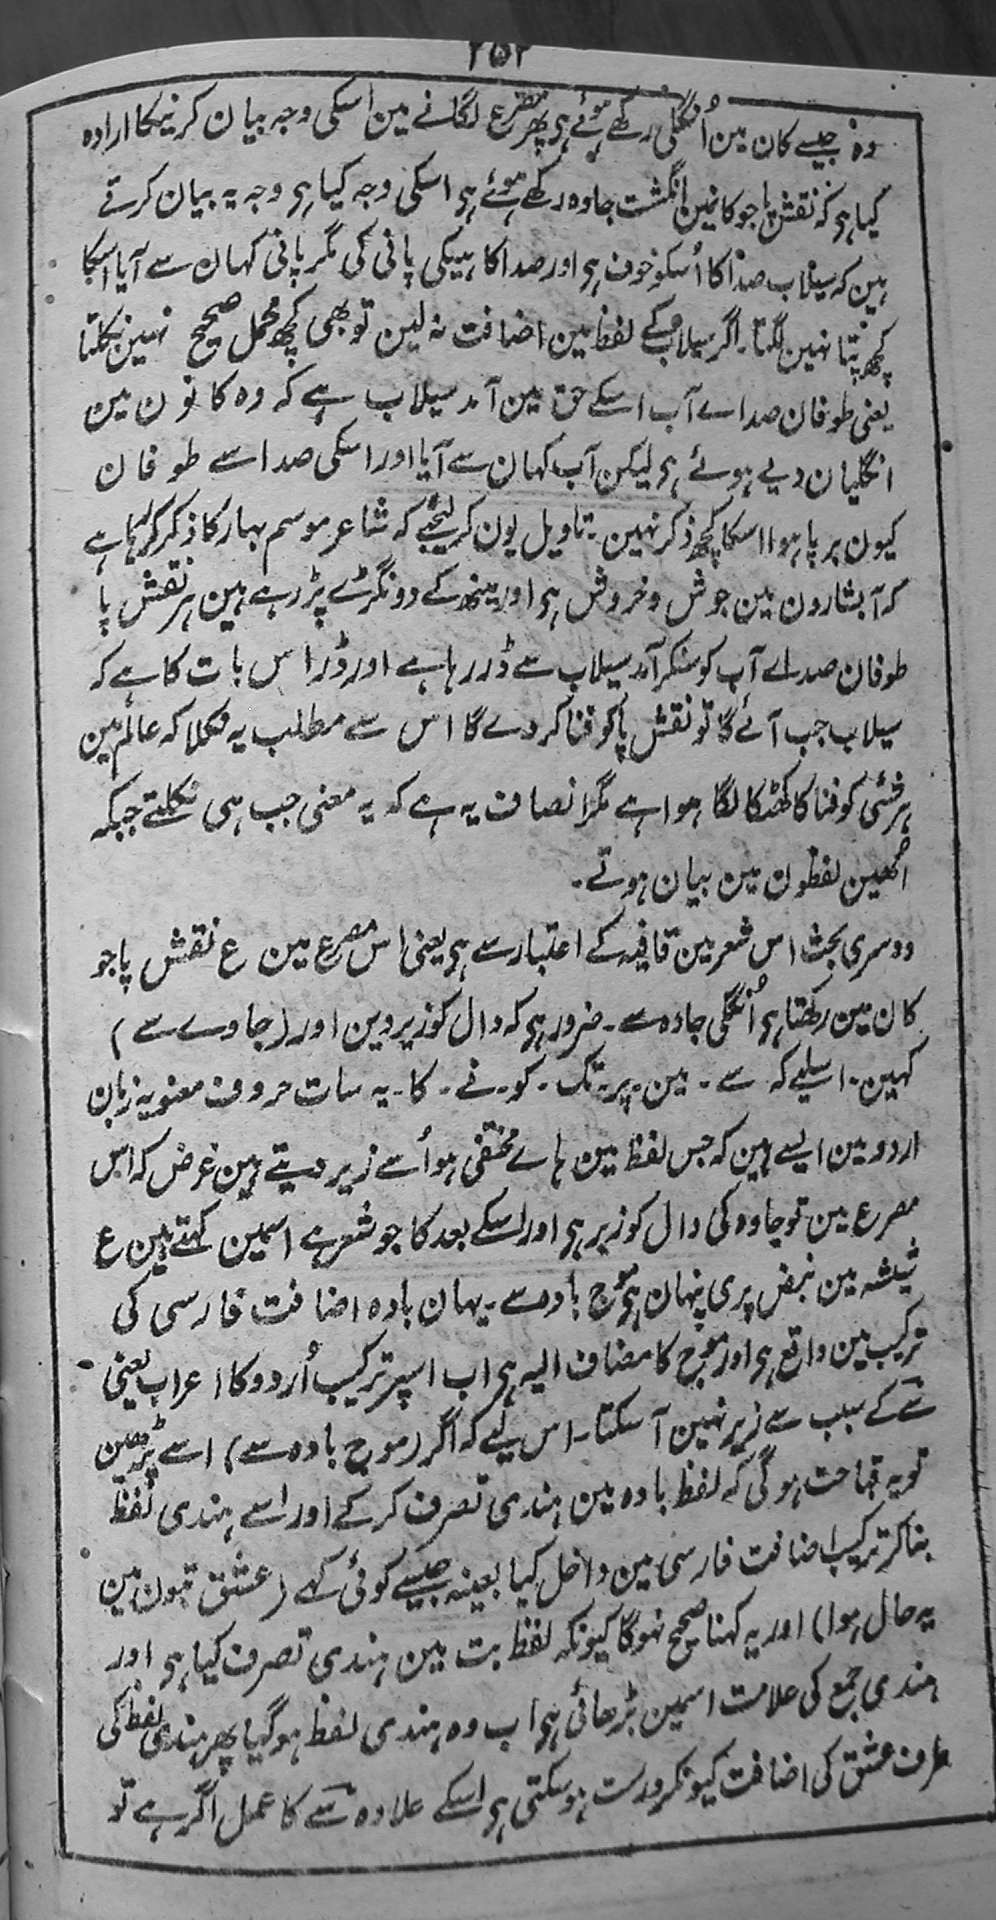 ۲۵۲
وہ جیسے کان مین اُنگلی رکھے ہوئے ہی پھر مصرع لگانے مین اسکی وجہ بیان کرنیکا ارادہ
کیا ہی کہ نقش پا جو کانمین انگشت جادہ رکھے ہوئے ہی اسکی وجہ کیا ہی وجہ یہ بیان کرتے
ہین کہ سیلاب صدا کا اُسکو خوف ہی اور صدا کاہیکی پانی کی مگر پانی کہان سے آیا اسکا
کچھ پتا نہین لگتا۔ اگر سیلاب کے لفظ مین اضافت نہ لین تو بھی کچھ محمل صحیح نہین نکلتا
یعنی طوفان صداے آب اسکے حق مین آمد سیلاب ہے کہ وہ کانون مین
انگلیان دیے ہوئے ہی لیکن آب کہان سے آیا اور اسکی صدا سے طوفان
کیون برپا ہوا اسکا کچھ ذکر نہین۔ تاویل یون کر لیجیے کہ شاعر موسم بہار کا ذکر کر رہا ہے
کہ آبشارون مین جوش و خروش ہی اور مینھ کے دونگڑے پڑ رہے ہین ہر نقش پا
طوفان صداے آب کو سنکر آمد سیلاب سے ڈر رہا ہے اور ڈر اس بات کا ہے کہ
سیلاب جب آئے گا تو نقش پا کو فنا کر دے گا اس سے مطلب یہ نکلا کہ عالم مین
ہر شئی کو فنا کا کھٹکا لگا ہوا ہے مگر انصاف یہ ہے کہ یہ معنی جب ہی نکلتے جبکہ
انھین لفظون مین بیان ہوتے۔
دوسری بحث اس شعر مین قافیہ کے اعتبار سے ہی یعنی اس مصرع مین ع نقش پا جو
کان مین رکھتا ہی اُنگلی جادہ سے۔ ضرور ہی کہ دال کو زیر دین اور (جادے سے)
کہین۔ اسلیے کہ سے۔ مین۔ پر۔ تک۔ کو۔ نے۔ کا۔ یہ سات حروف معنویہ زبان
اردو مین ایسے ہین کہ جس لفظ مین ہاے مختفی ہو اُسے زیر دیتے ہین غرض کہ اس
مصرع مین تو جادہ کی دال کو زیر ہی اور اسکے بعد کا جو شعر ہے اسمین کہتے ہین ع
شیشہ مین نبض پری پنہان ہی موج بادہ سے۔ یہان بادہ اضافت فارسی کی
ترکیب مین واقع ہی اور موج کا مضاف الیہ ہی اب اسپر ترکیب اُردو کا اعراب یعنی
سے کے سبب سے زیر نہین آ سکتا۔ اس لیے کہ اگر (موج بادہ سے) اسے پڑھین
تو یہ قباحت ہوگی کہ لفظ بادہ مین ہندی تصرف کر کے اور اسے ہندی لفظ
بنا کر ترکیب اضافت فارسی مین داخل کیا بعینہ جیسے کوئی کہے (عشق بتون مین
یہ حال ہوا) اور یہ کہنا صحیح نہوگا کیونکہ لفظ بت مین ہندی تصرف کیا ہی اور
ہندی جمع کی علامت اسمین بڑھائی ہی اب وہ ہندی لفظ ہوگیا پھر ہندی لفظ کی
طرف عشق کی اضافت کیونکر درست ہوسکتی ہی اسکے علاوہ سے کا عمل اگر ہے تو